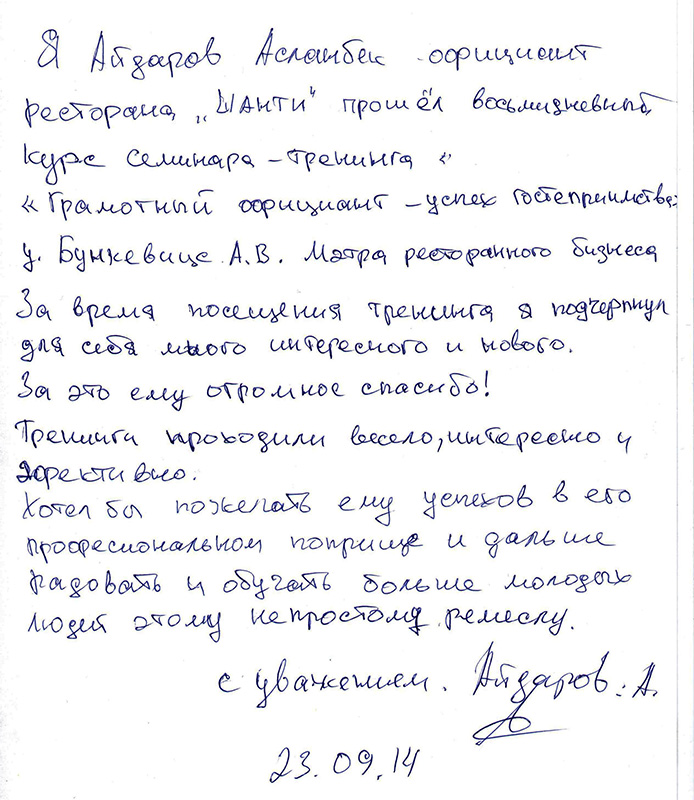 Я Айдаров Асланбек официант
ресторана „ШАНТИ" прошёл восьмидневный
курс семинара - тренинга «
« Грамотный официант - успех гостеприимства»
у. Бункевице А.В. Мэтра ресторанного бизнеса
За время посещения тренинга я подчерпнул
для себя много интересного и нового.
За это ему огромное спасибо!
Тренинги проходили весело, интересно и
эфективно.
Хотел бы пожелать ему успехов в его
професиональном поприще и дальше
радовать и обучать больше молодых
людей этому непростому ремеслу.
с уважением. Айдаров. А.
23.09.14